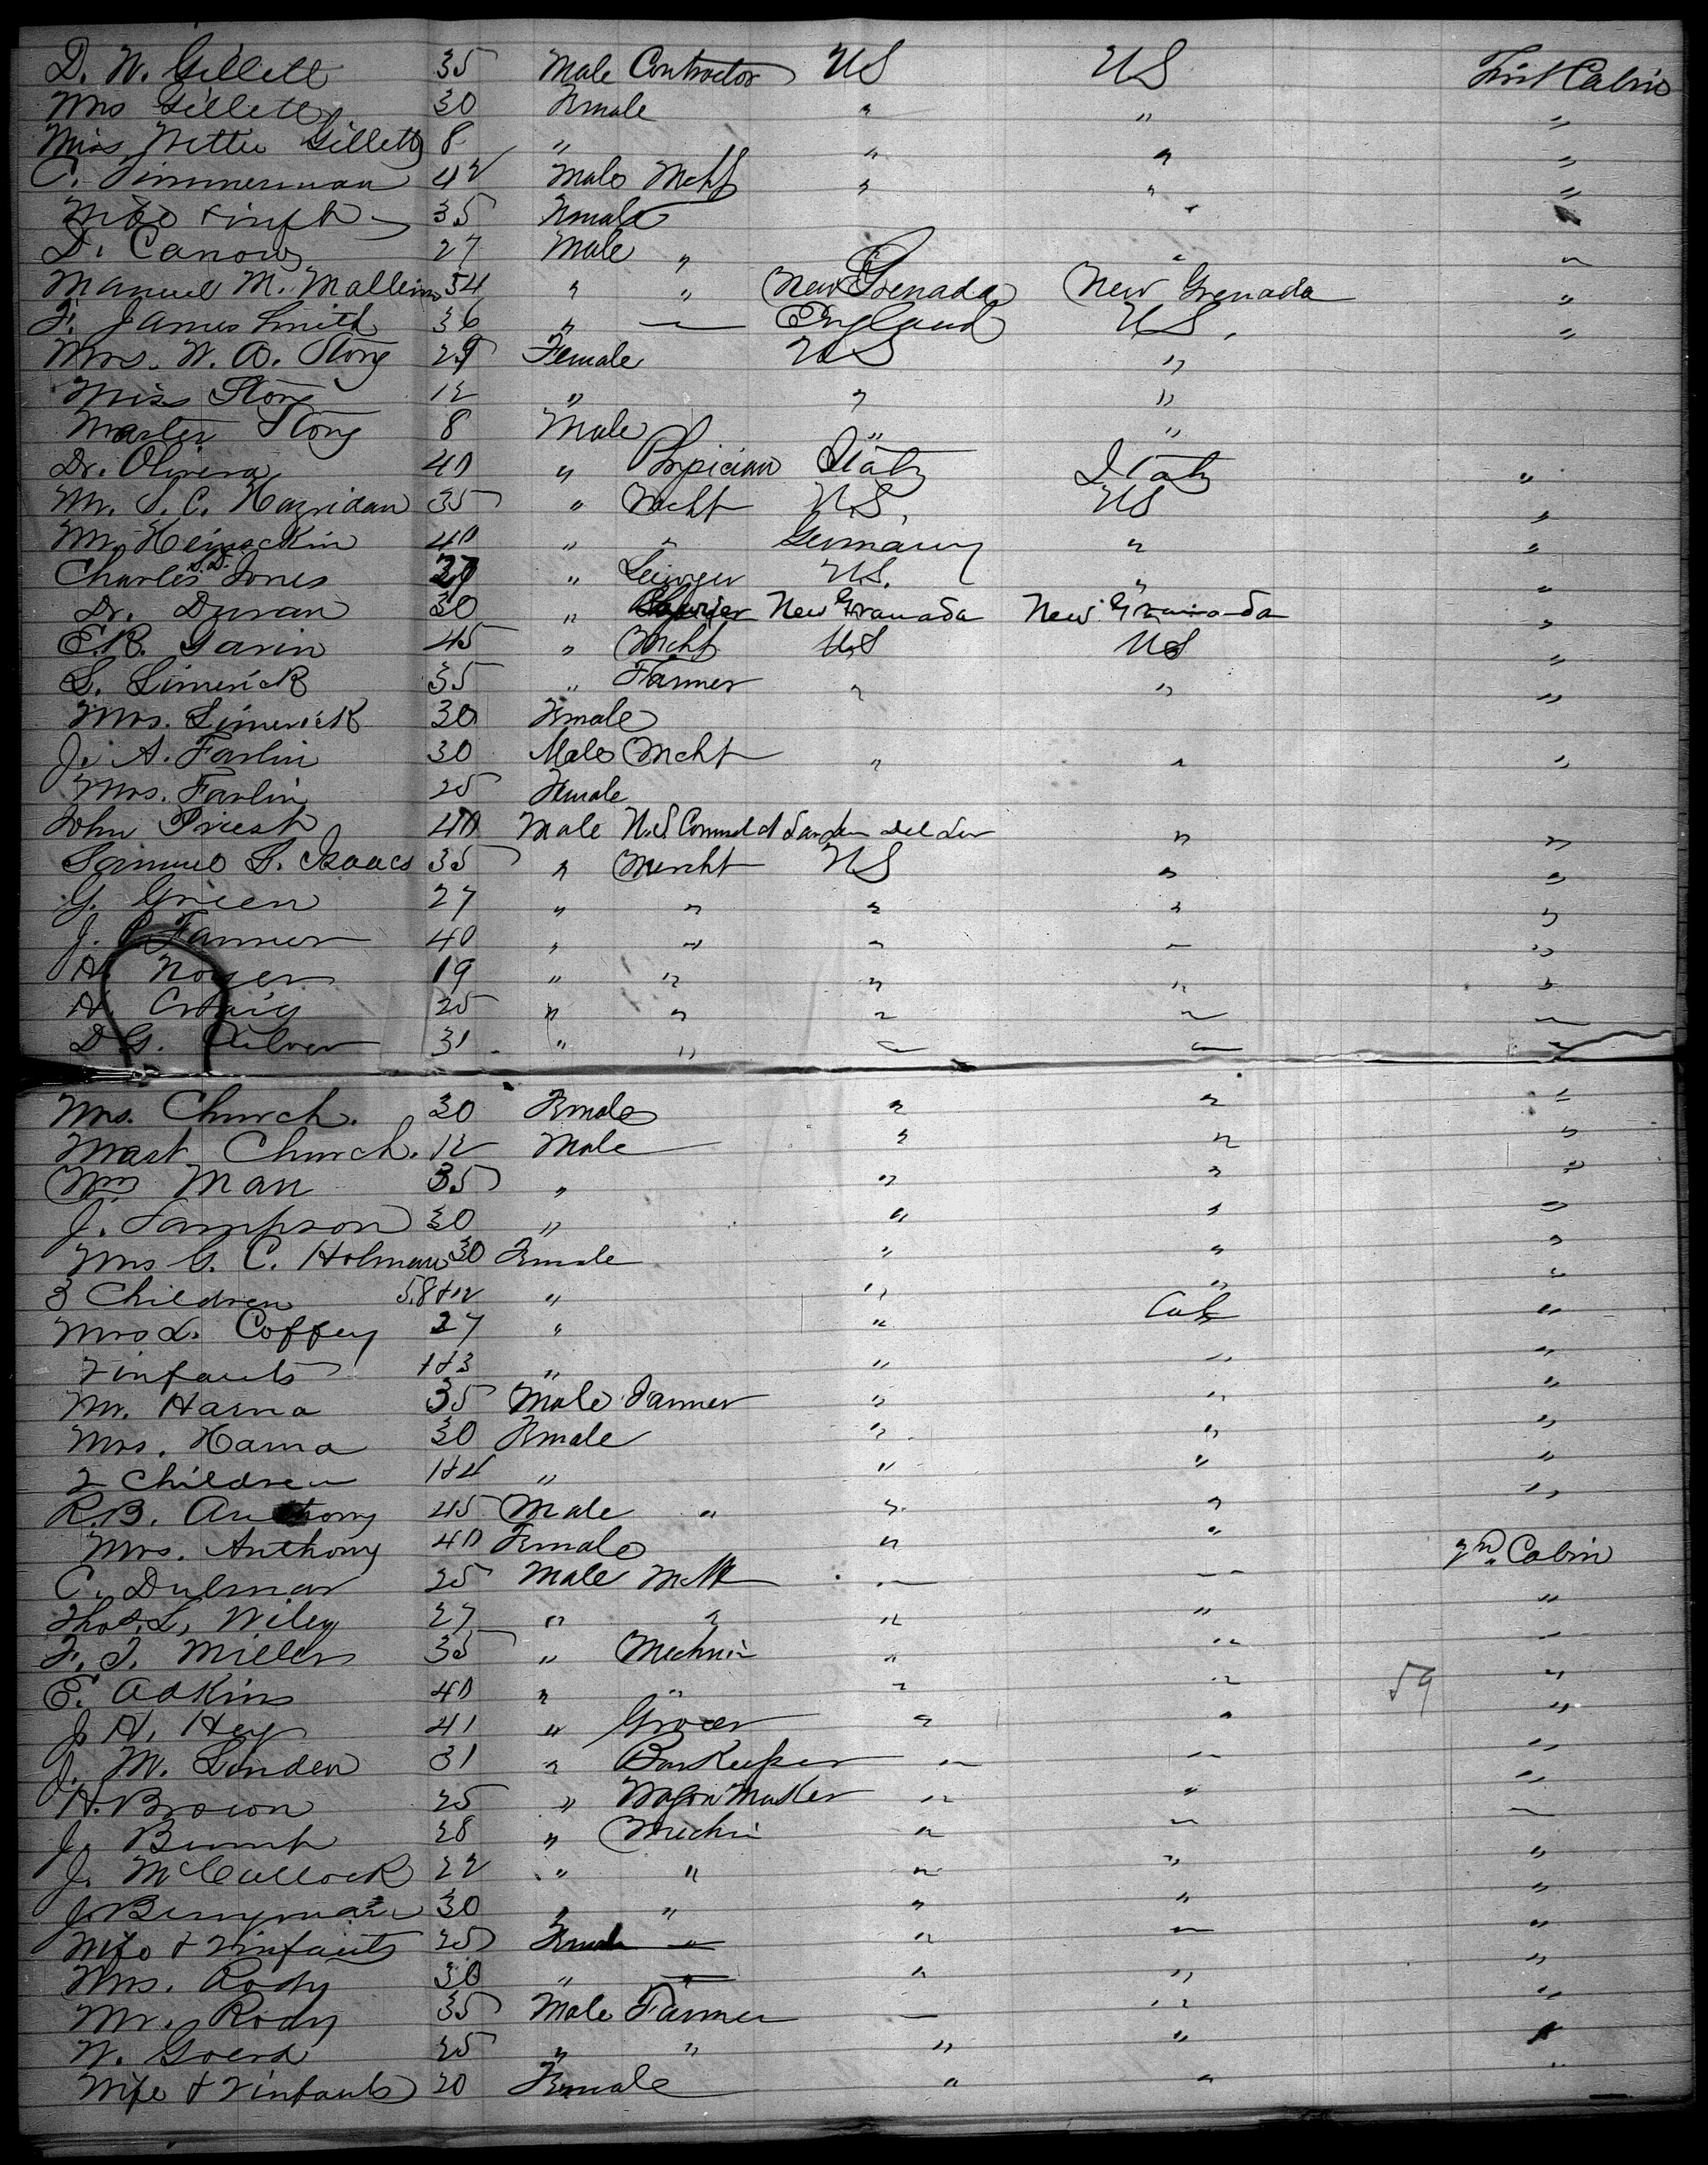 D. W. Gillett 35 Male Contractor US US First Cabin
Mrs Gillett 30 Female " " "
Miss Nettie Gillett 8 " " " "
C. Zimmerman 42 Male Mcht " " "
35 Female "
D. Canow 27 Male " " "
Manuel M. Mallerino 54 " " New Grenada New Grenada "
F. James Smith 36 " — England US. "
Mrs. W. O. Stong 29 Female US "
Miss Stong 12 " " "
Master Stong 8 Male " "
Dr. Olivera 40 " Phyician Italy Italy "
Mr. S. C. Hazridan 35 " Mcht U.S. US "
Mr. 40 " " Germany " "
Charles S.D. Jones 27 " U.S. " "
Dr. Duran 30 " New Granada New Granada "
E.R. Garin 45 " Mcht US US "
S. Limerick 35 " Farmer " " "
Mrs. Limerick 30 Female
J. A. Farlin 30 Male Mcht " " "
Mrs. Farlin 25 Female
John Priest 40 Male U.S. Del Sur " "
Samuel S. Isaacs 35 " Mercht US " "
G. Green 27 " " " " "
J. P. Farmer 40 " " " " "
A. Noyer 19 " " " " "
A. Craig 25 " " " " "
D G. Silver 31 " " " " "
Mrs. Church. 30 Female " " "
Mast Church. 12 Male " " "
Wm Man 35 " " " "
J. Sampson 30 " " " "
Mrs G. C. Holman 30 Female " " "
3 Children 5,8 & 12 " " " "
Mrs L. Coffey 27 " " Cal "
2 infants 1 & 3 " " " "
Mr. Harna 35 Male Farmer " " "
Mrs. Harna 30 Female " " "
2 Children 1 & 4 " " " "
R.B. Anthony 45 Male " " " "
Mrs. Anthony 40 Female " " 2nd Cabin
C. Dulmar 25 Male Mcht " "
Thos. L, Wiley 27 " " " " "
F. T. Miller 35 " Mechnic " " "
E. Adkins 40 " " " " 59 "
J. H. Hey 41 " Grocer " " "
J. M. Linden 31 " Bar Keeper " " "
H. Brown 25 " Wagon Maker " " "
J. Bump 28 " Mechni " " "
J. McCullock 22 " " " " "
J. Berryman 30 " " " " "
Wife & 2 infants 25 Female " " " "
Mrs. Rody 30 " — " " "
Mr. Rody 35 Male Farmer " " "
W. Goerd 25 " " " " "
Wife & 2 infants 20 Female " " "